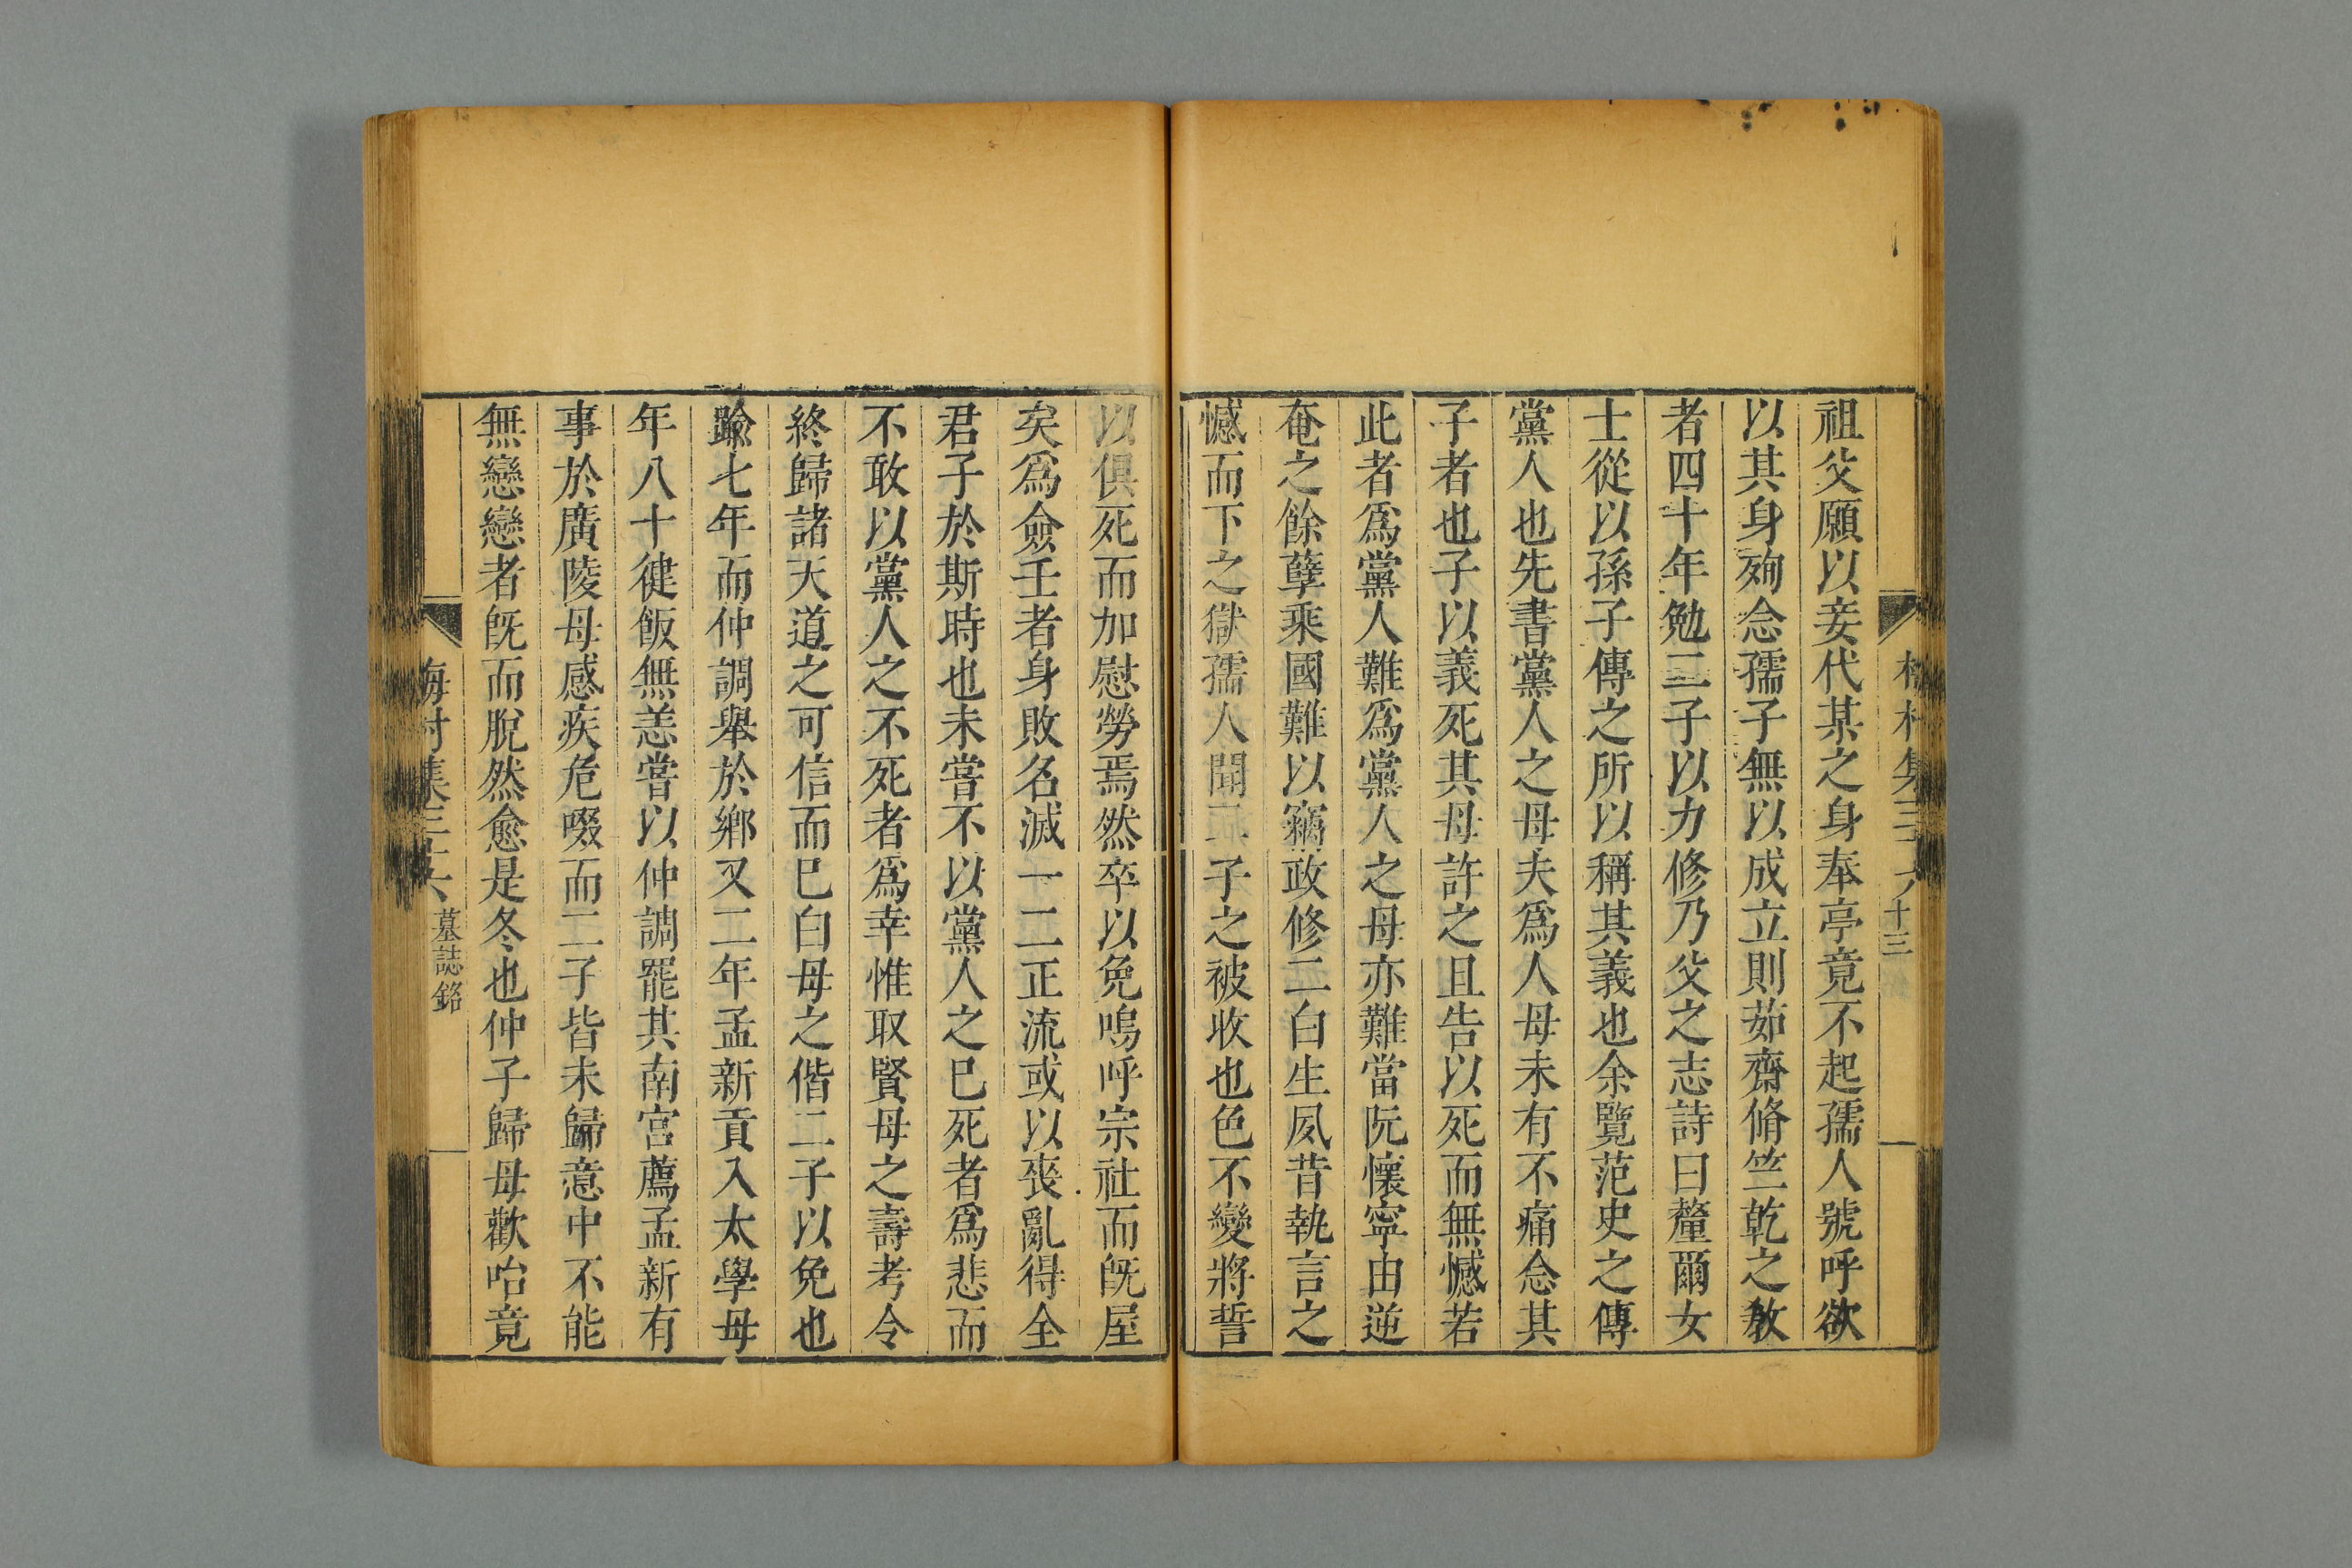 十三
祖父願以妾代某之身奉亭竟不起孺人號呼欲
以其身殉念孺子無以成立則茹齋脩竺乾之教
者四十年勉二子以力修乃父之志詩曰釐爾女
士從以孫子傳之所以稱其義也余覽范史之傳
黨人也先書黨人之母夫爲人母未有不痛念其
子者也子以義死其母許之且告以死而無憾若
此者爲黨人難爲黨人之母亦難當阮懷寧由逆
奄之餘孽乘國難以竊政修二白生夙昔執言之
憾而下之獄孺人聞二子之被收也色不變將誓
以俱死而加慰勞焉然卒以免嗚呼宗社而旣屋
矣爲僉壬者身敗名滅一二正流或以喪亂得全
君子於斯時也未嘗不以黨人之已死者爲悲而
不敢以黨人之不死者爲幸惟取賢母之壽考令
終歸諸天道之可信而已白母之偕二子以免也
踰七年而仲調舉於鄉又二年孟新貢入太學母
年八十健飯無恙嘗以仲調罷其南宮薦孟新有
事於廣陵母感疾危啜而二子皆未歸意中不能
無戀戀者旣而脫然愈是冬也仲子歸母歡哈竟
梅村集三十六
墓誌銘